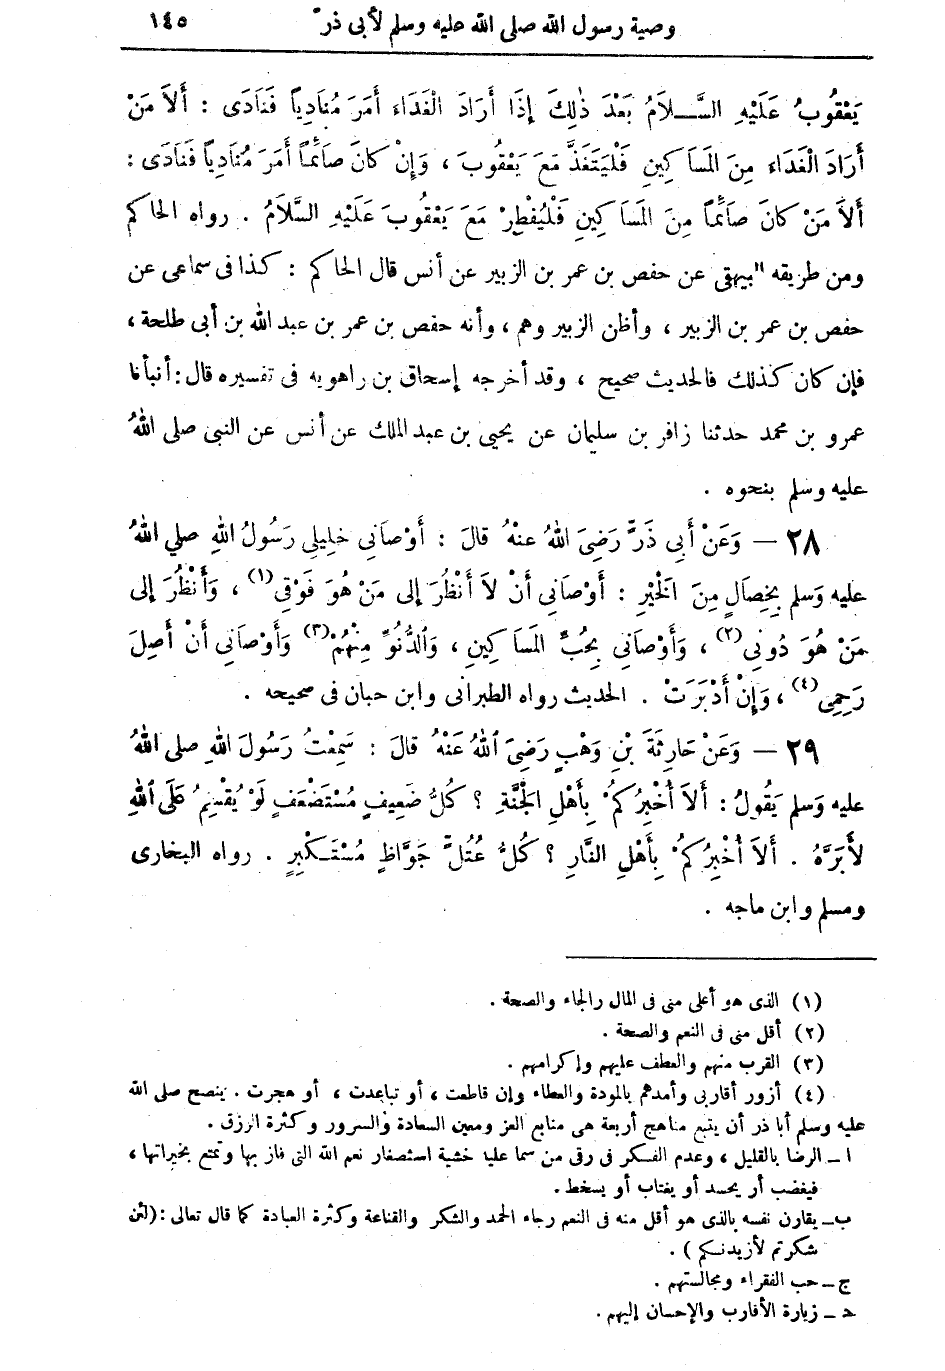 وصية رسول الله صلى الله عليه وسلم لأبى ذرّ ١٤٥
يَعْقُوبُ عَلَيْهِ السَّــلاَمُ بَعْدَ ذٰلِكَ إِذَا أَرَادَ الْغَدَاءَ أَمَرَ مُنَادِياً فَنَادَى : أَلاَ مَنْ
أَرَادَ الْغَدَاءَ مِنَ المَسَاكِينِ فَلْيَتَغَذَّ مَعَ يَعْقُوبَ ، وَإِنْ كَانَ صَائِماً أَمَرَ مُنَادِياً فَنَادَى :
أَلاَ مَنْ كَانَ صَائِماً مِنَ المَسَاكِينِ فَلْيُفْطِرْ مَعَ يَعْقُوبَ عَلَيْهِ السَّلاَمُ . رواه الحاكم
ومن طريقه البيهقى عن حفص بن عمر بن الزبير عن أنس قال الحاكم : كذا فى سماعى عن
حفص بن عمر بن الزبير ، وأظن الزبير وهم ، وأنه حفص بن عمر بن عبد الله بن أبى طلحة ،
فإن كان كذلك فالحديث صحيح ، وقد أخرجه إسحاق بن راهويه فى تفسيره قال : أنبأنا
عمرو بن محمد حدثنا زافر بن سليمان عن يحيى بن عبد الملك عن أنس عن النبى صلى اللهُ
عليه وسلم بنحوه .
٢٨ – وَعَنْ أَبِى ذَرٍّ رَضِىَ اللهُ عنْهُ قالَ : أَوْصَانِى خليلِى رَسُولُ اللهِ صلي اللهُ
عليه وَسلم بِخِصَالٍ مِنَ الْخَيْرِ : أَوْصَانِى أَنْ لاَ أَنْظُرَ إلى مَنْ هُوَ فَوْقِى(١) ، وَأَنْظُرَ إلى
مَنْ هُوَ دُونِى(٢) ، وَأَوْصَانِى بِحُبِّ المَسَاكِينِ ، وَالدُّنُوِّ مِنْهُمْ(٣) وَأَوْصَانِى أَنْ أَصِلَ
رَحِمِى(٤) ، وَإِنْ أَدْبَرَتْ . الحديث رواه الطبرانى وابن حبان فى صحيحه .
٢٩ – وَعَنْ حَارِثَةَ بْنِ وَهْبٍ رَضِىَ اللهُ عَنْهُ قالَ : سَمِعْتُ رَسُولَ اللهِ صلى اللهُ
عليه وَسلم يَقُولُ : أَلاَ أُخْبِرُكُمْ بِأَهْلِ الْجَنَّةِ ؟ كُلُّ ضَعِيفٍ مُسْتَضْعَفٍ لَوْ يُقْسِمُ عَلَى اللهِ
لأَبَرَّهُ . أَلاَ أُخْبِرُكُمْ بِأَهْلِ النَّارِ ؟ كُلُّ عُتُلٍّ جَوَّاظٍ مُسْتَكْبِرٍ . رواه البخارى
ومسلم وابن ماجه .
(١) الذى هو أعلى منى فى المال والجاه والصحة .
(٢) أقل منى فى النعم والصحة .
(٣) القرب منهم والعطف عليهم وإكرامهم .
(٤) أزور أقاربى وأمدهم بالمودة والعطاء وإن قاطعت ، أو تباعدت ، أو هجرت . ينصح صلى الله
عليه وسلم أبا ذر أن يتبع مناهج أربعة هى منابع العز ومعين السعادة والسرور وكثرة الرزق .
ا – الرضا بالقليل ، وعدم الفكر فى رقى من سما عليا خشية استصغار نعم الله التى فاز بها وتمتع بخيراتها ،
فيغضب أو يحسد أو يغتاب أو يسخط .
ب – يقارن نفسه بالذى هو أقل منه فى النعم رجاء الحمد والشكر والقناعة وكثرة العبادة كما قال تعالى : (لئن
شكرتم لأزيدنكم ) .
ج – حب الفقراء ومجالستهم .
د – زيارة الأقارب والإحسان إليهم .